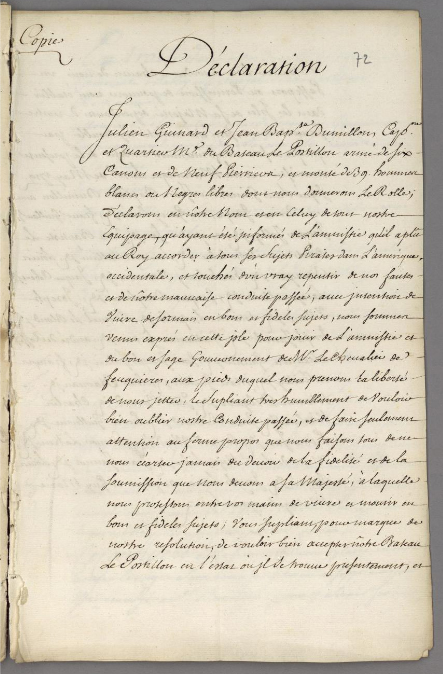 Copie
Déclaration
72
Julien Guinard et Jean Bapte Dumillon, Cape
et Quartier Me. du Bateau Le Postillon armé de six
Canons et de Neuf Pierriers, et monté de 59 hommes
blancs ou Negres libres dont nous donnerons Le Rolle;
déclarons en nôtre Nom et en Celuy de tout nostre
Equipage, qu'ayant été informés de L'amnistie qu'il a plû
au Roy accorder à tous ses Sujets Pirates dans L'amérique
occidentale, et touchés d'un vray repentir de nos fautes
et de nôtre mauvaise conduite passée, avec intention de
vivre desormais en bons et fideles sujets, nous sommes
venus exprés en cette jsle pour jouir de L'amnistie et
du bon et sage Gouvernement de Mr. Le Chevalier de
feuquieres, aux pieds duquel nous prenons La liberté
de nous jetter, Le supliant tres humblement de vouloir
bien oublier nostre Conduite passée, et de faire seulement
attention au ferme propos que nous faisons tous de ne
nous écarter jamais du devoir de la fidelité et de la
soumission que nous devons à sa Majesté, à laquelle
nous protestons entre vos mains de vivre et mourir en
bons et fideles sujets; Vous supliant, pour marque de
nostre resolution, de vouloir bien accepter nôtre Bateau
Le Postillon en l'estat où jl se trouve presentement, et